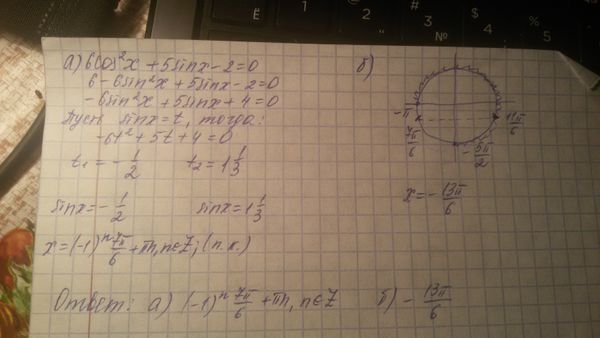 а) 6cos²x + 5sinx - 2 = 0
6 - 6sin²x + 5sinx - 2 = 0
-6sin²x + 5sinx + 4 = 0
Пусть sinx = t, тогда:
-6t² + 5t + 4 = 0
t₁ = -1/2 t₂ = 1 1/3
sinx = -1/2 sinx = 1 1/3
x = (-1)ⁿ 7π/6 + πn, n∈Z; (п.к.)
б)
-π
7π/6
11π/6
-5π/2
x = -13π/6
Ответ: а) (-1)ⁿ 7π/6 + πn, n∈Z б) -13π/6
Ё
2
3
№
4
5